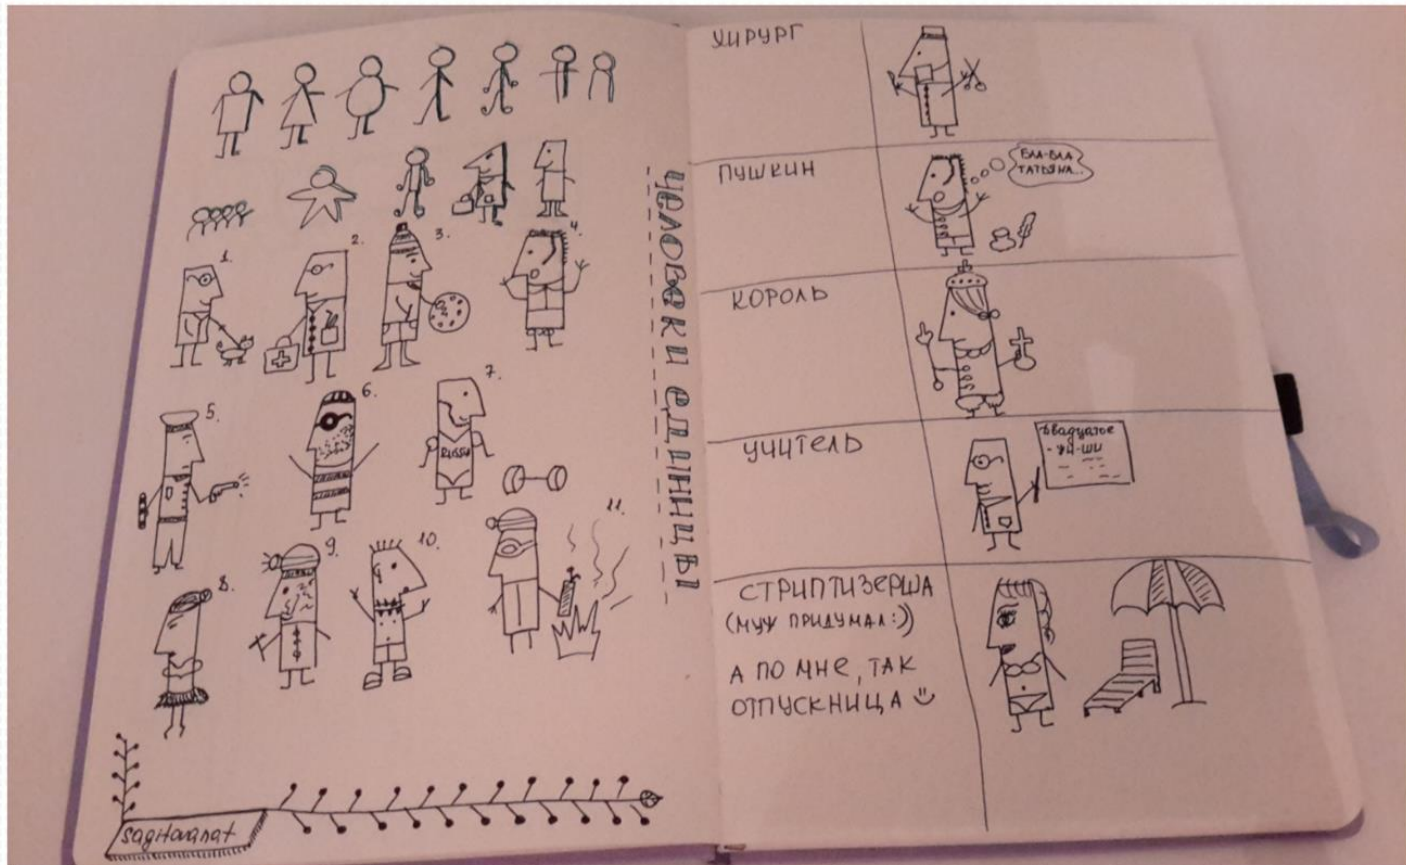 1.
2.
3.
4.
5.
6.
7.
RUSSIA
8.
9.
10.
11.
человеки единицы
sagitovanat
ХИРУРГ
ПУШКИН
БЛА-БЛА
ТАТЬЯНА...
КОРОЛЬ
УЧИТЕЛЬ
Двадцатое
- жи-ши
СТРИПТИЗЕРША
(МУЖ ПРИДУМАЛ:))
А ПО МНЕ, ТАК
ОТПУСКНИЦА